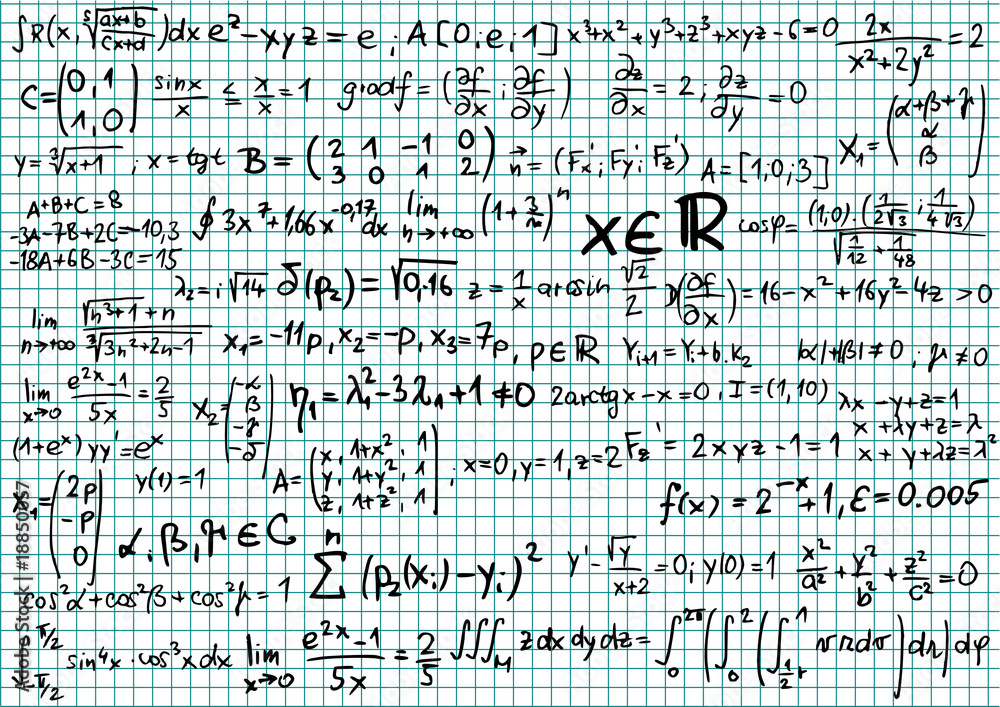 ∫R(x, ⁵√((ax+b)/(cx+d)))dx e^z-xyz = e ; A[0;e;1] x³+x²+y³+z³+xyz-6=0 2x/(x²+2y²) = 2
C=(0,1 1,0) sinx/x ≤ x/x = 1 gradf = (∂f/∂x ; ∂f/∂y) ∂z/∂x = 2 ; ∂z/∂y = 0
X₁= (α+β+γ α β)
y=³√(x+1) ; x = tgt B = (2 1 -1 0 3 0 1 2) n⃗ = (Fx'; Fy'; Fz') A=[1;0;3]
A+B+C=8
-3A-7B+2C=-10,3
-18A+6B-3C=15
∮ 3x⁷+1,66x^(-0,17) dx lim n→+∞ (1+3/n)^n x∈ℝ cosφ= (1,0)·(1/(2√3) ; 1/(4√3)) / √(1/12 + 1/48)
λ₂=i√14 δ(p₂)=√0,16 z = 1/x arcsin √2/2 D(∂f/∂x)=16-x²+16y²-4z >0
lim n→+∞ (√(n³+1)+n)/(³√(3n²+2n-1)) x₁=-11p, x₂=-p, x₃=7p, p∈ℝ Yᵢ₊₁=Yᵢ+b.k₂ |α|+|β|≠0 ; γ≠0
lim x→0 (e^(2x)-1)/5x = 2/5 X₂=(-α β -γ -δ) η₁=λ₁²-3λ₁+1≠0 2arctgx-x=0, I=(1,10)
λx -y+z=1
x +λy+z=λ
x + y+λz=λ²
(1+e^x)yy'=e^x y(1)=1 A=(x, 1+x², 1 y, 1+y², 1 z, 1+z², 1) ; x=0,y=1,z=2 Fz'=2xyz-1=1
X₁=(2p -p 0) f(x)=2^(-x)+1, ε=0.005
α,β,γ∈C ∑ⁿ (p₂(xᵢ)-yᵢ)² y'-√y/(x+2)=0; y(0)=1 x²/a²+y²/b²+z²/c²=0
cos²α+cos²β+cos²γ=1
π/2 -π/2 sin⁴x·cos³xdx lim x→0 (e^(2x)-1)/5x = 2/5 ∫∫∫M zdxdydz= ∫₀^2π(∫₀²(∫ 1/2 r ¹
Adobe Stock | #18850057